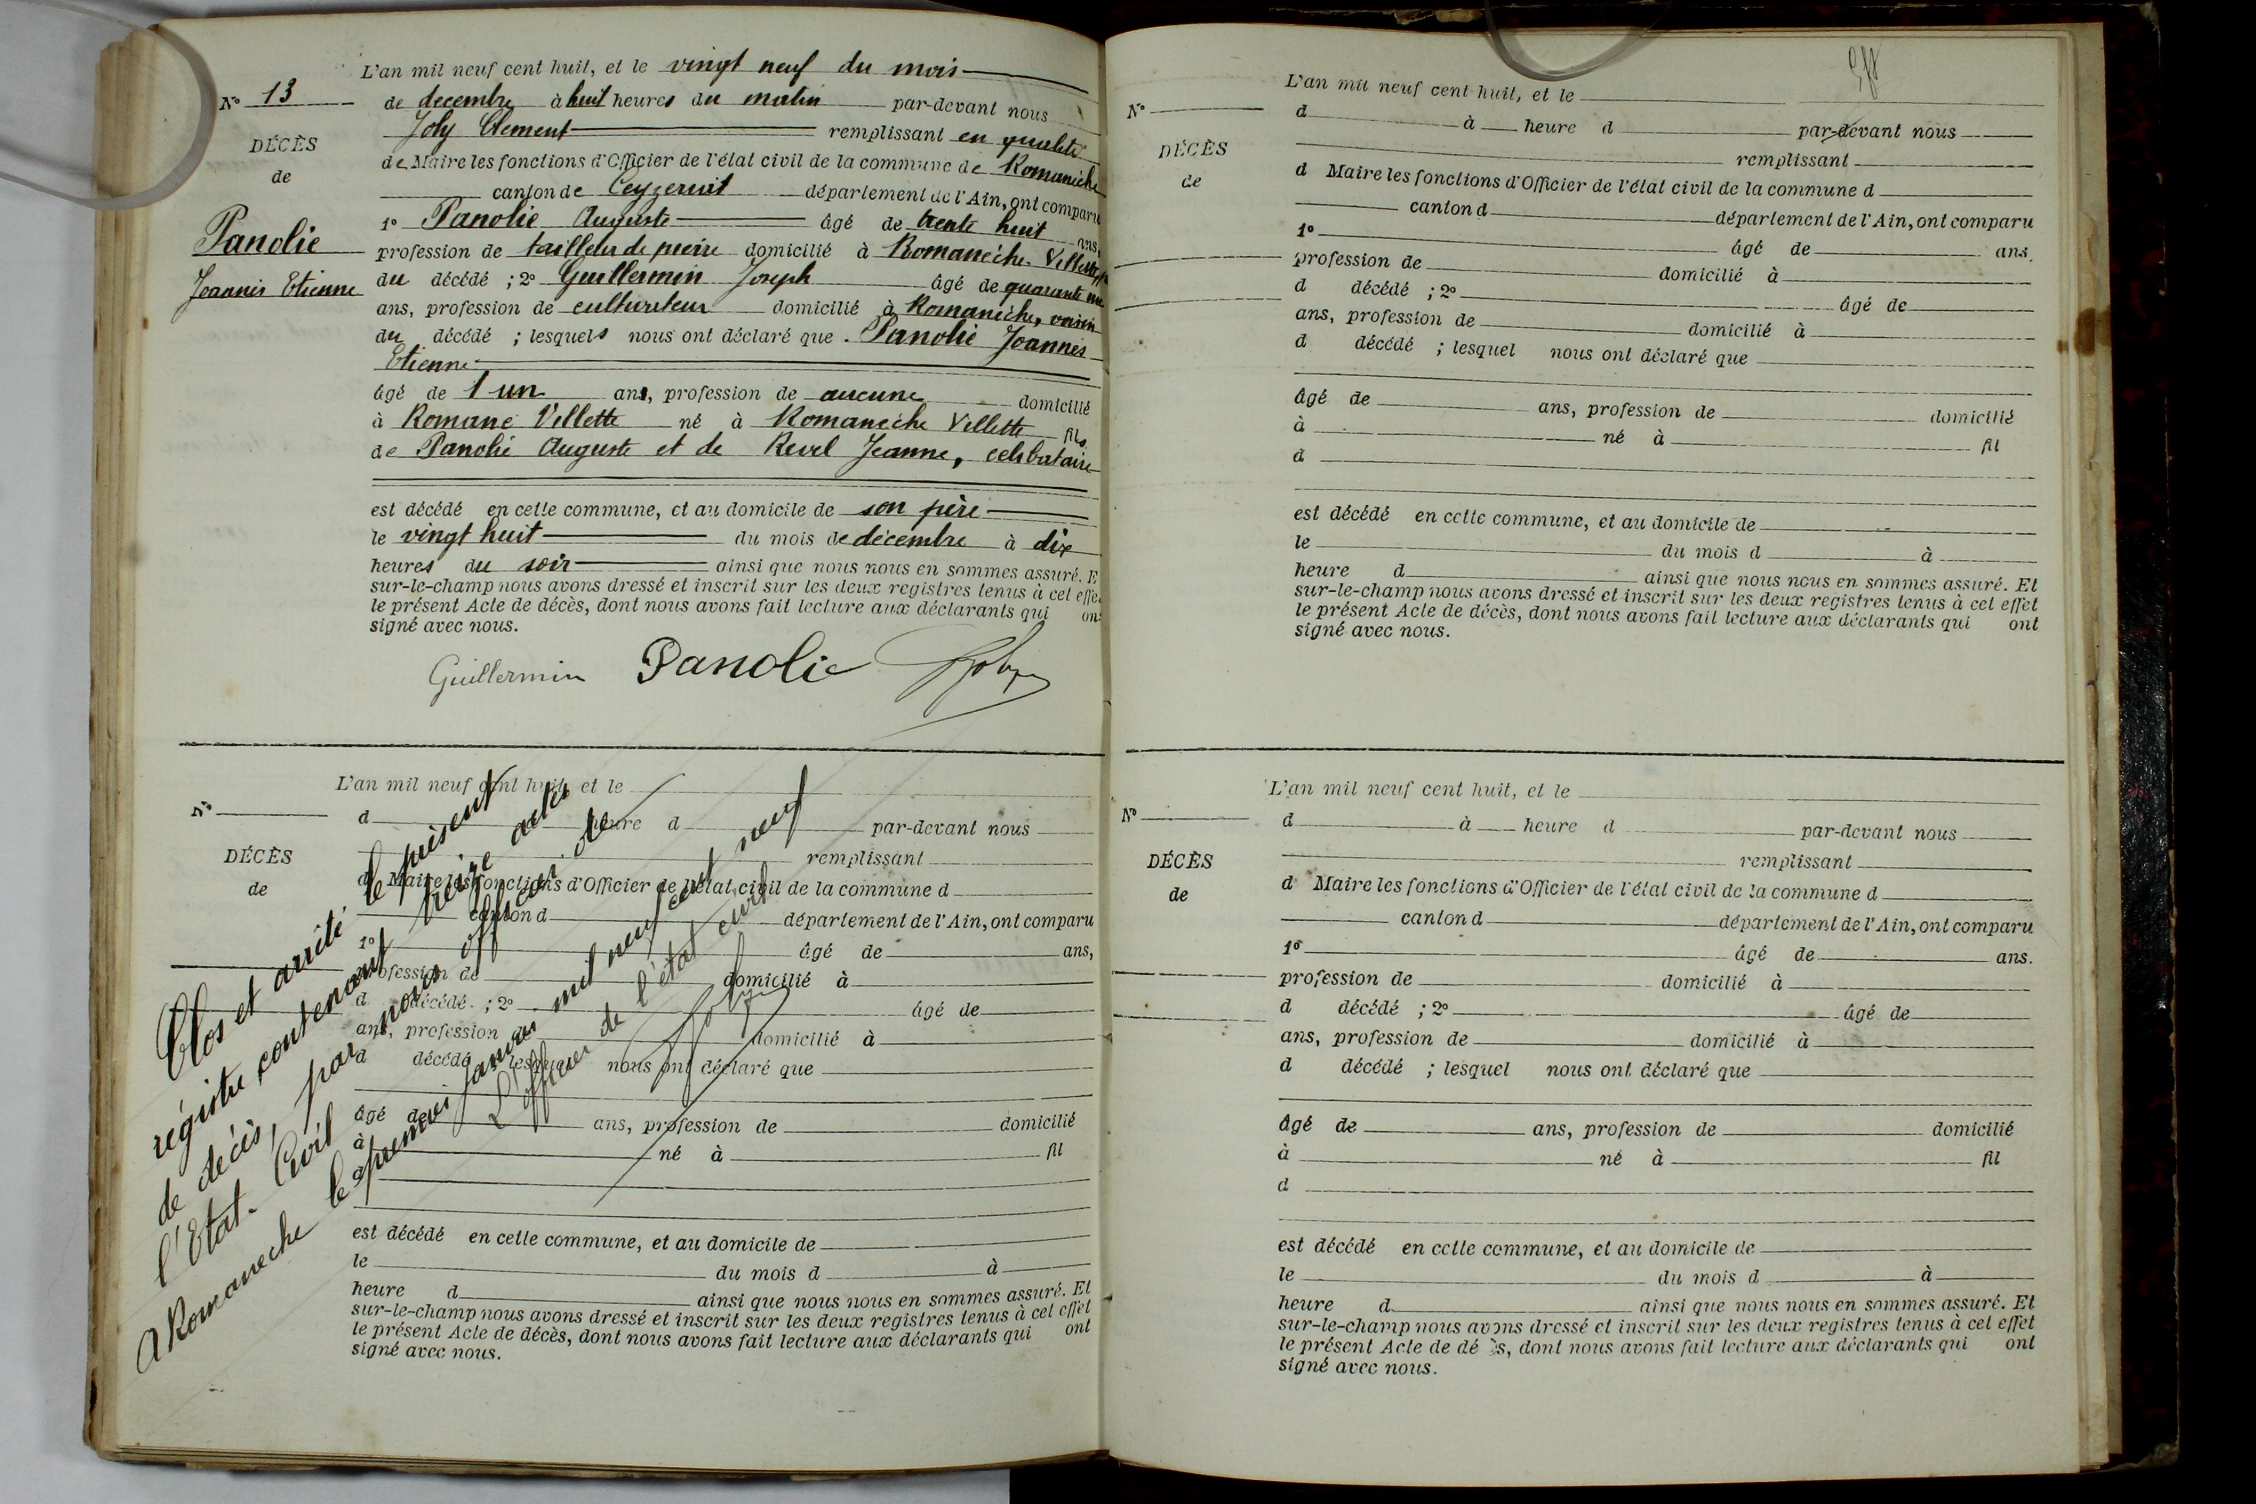 L'an mil neuf cent huit, et le vingt neuf du mois
N° 13
de decembre à huit heures du matin par-devant nous
Joly Clement remplissant en qualité
DÉCÈS
de Maire les fonctions d'Officier de l'état civil de la commune de Romanèche
de
canton de Ceyzeriat département de l'Ain, ont comparu
1° Panolie Auguste âgé de trente huit ans,
Panolie
profession de tailleur de pierre domicilié à Romanèche Villette
Joannès Etienne
du décédé ; 2° Guillermin Joseph âgé de quarante un
ans, profession de cultivateur domicilié à Romanèche, voisin
du décédé ; lesquels nous ont déclaré que Panolie Joannès
Etienne
âgé de 1 un ans, profession de aucune domicilié
à Romane Villette né à Romanèche Villette fils
de Panolie Auguste et de Revel Jeanne, celibataire
est décédé en cette commune, et au domicile de son père
le vingt huit du mois de décembre à dix
heures du soir ainsi que nous nous en sommes assuré. E
sur-le-champ nous avons dressé et inscrit sur les deux registres tenus à cet effe
le présent Acte de décès, dont nous avons fait lecture aux déclarants qui on
signé avec nous.
Guillermin Panolie Joly
L'an mil neuf cent huit, et le
N°
d heure d par-devant nous
remplissant
DÉCÈS
d Maire les fonctions d'Officier de l'état civil de la commune d
de
canton d département de l'Ain, ont comparu
1° âgé de ans,
profession de domicilié à
d décédé ; 2° âgé de
ans, profession domicilié à
d décédé lesquel nous ont déclaré que
âgé de ans, profession de domicilié
à né à fil
d
est décédé en cette commune, et au domicile de
le du mois d à
heure d ainsi que nous nous en sommes assuré. Et
sur-le-champ nous avons dressé et inscrit sur les deux registres tenus à cet effet
le présent Acte de décès, dont nous avons fait lecture aux déclarants qui ont
signé avec nous.
Clos et arrêté le présent
registre contenant treize actes
de décès, par nous officier de
l'Etat-Civil
A Romaneche le premier janvier mil neuf cent neuf
L'officier de l'état civil
Joly
L'an mil neuf cent huit, et le
N°
d à heure d par-devant nous
remplissant
DÉCÈS
de
d Maire les fonctions d'Officier de l'état civil de la commune d
canton d département de l'Ain, ont comparu
1° âgé de ans.
profession de domicilié à
d décédé ; 2° âgé de
ans, profession de domicilié à
d décédé ; lesquel nous ont déclaré que
âgé de ans, profession de domicilié
à né à fil
d
est décédé en cette commune, et au domicile de
le du mois d à
heure d ainsi que nous nous en sommes assuré. Et
sur-le-champ nous avons dressé et inscrit sur les deux registres tenus à cet effet
le présent Acte de décès, dont nous avons fait lecture aux déclarants qui ont
signé avec nous.
L'an mil neuf cent huit, et le
N°
d à heure d par-devant nous
remplissant
DÉCÈS
de
d Maire les fonctions d'Officier de l'état civil de la commune d
canton d département de l'Ain, ont comparu
1° âgé de ans.
profession de domicilié à
d décédé ; 2° âgé de
ans, profession de domicilié à
d décédé ; lesquel nous ont déclaré que
âgé de ans, profession de domicilié
à né à fil
d
est décédé en cette commune, et au domicile de
le du mois d à
heure d ainsi que nous nous en sommes assuré. Et
sur-le-champ nous avons dressé et inscrit sur les deux registres tenus à cet effet
le présent Acte de dé s, dont nous avons fait lecture aux déclarants qui ont
signé avec nous.